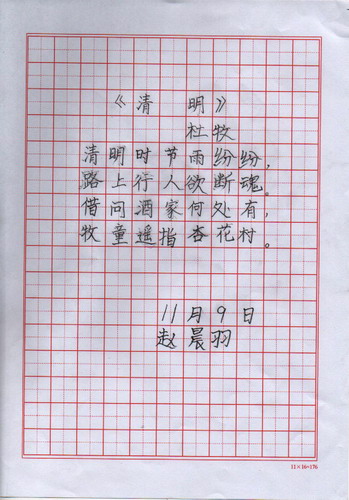 《清明》
杜牧
清明时节雨纷纷,
路上行人欲断魂。
借问酒家何处有,
牧童遥指杏花村。
11月9日
赵晨羽
11×16=176